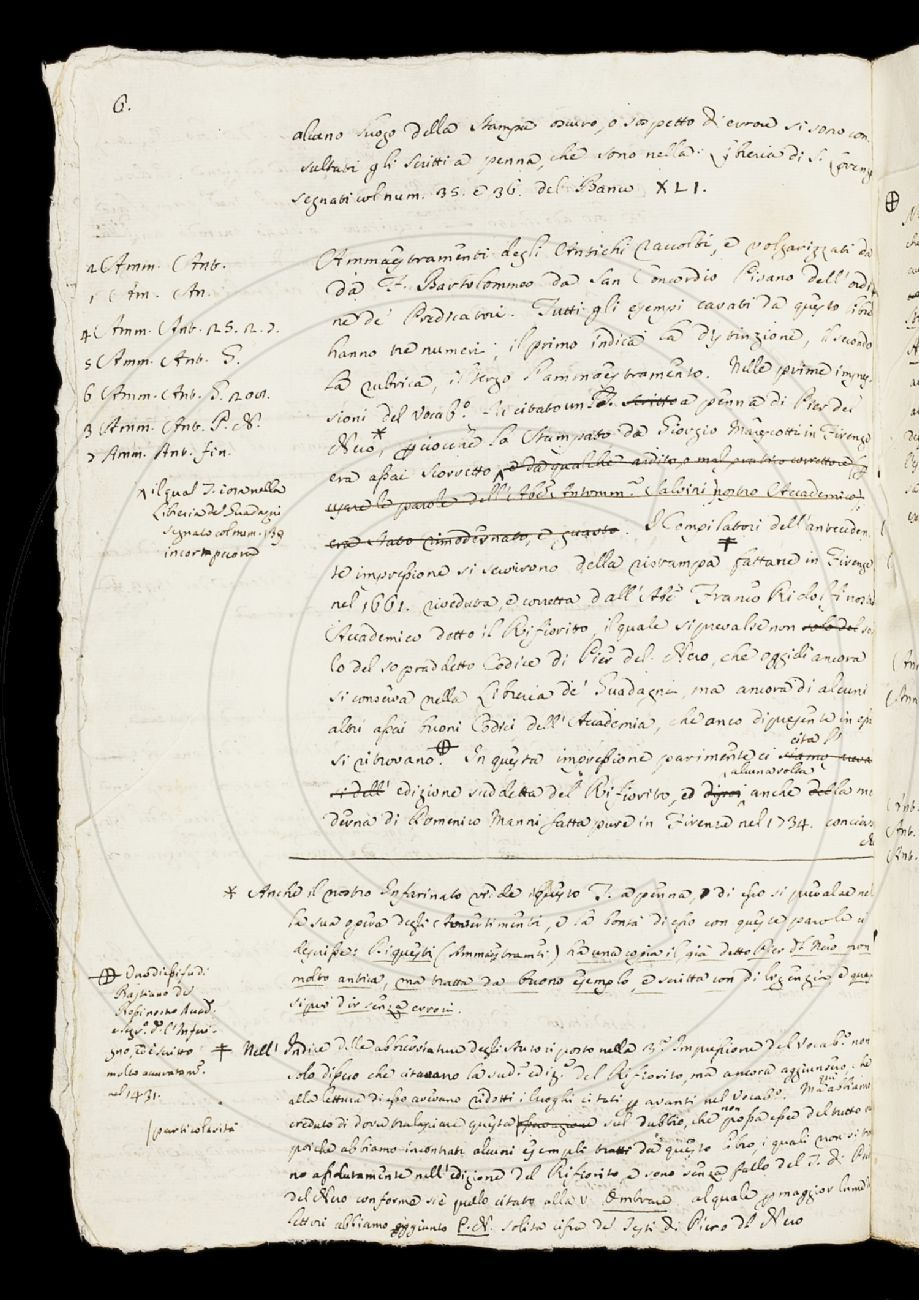 6.
alcuno luogo della Stampa oscuro, o sospetto di errore si sono con
sultati gli scritti a penna, che sono nella Libreria di S. Lorenzo
segnati col num. 35. e 36. del Banco XLI.
2 Amm. Ant.
1 Am. An.
4 Amm. Ant. 25. 2. 7.
5 Amm. Ant. G.
6 Amm. Ant. G.
3 Amm. Ant. P. N.
7 Amm. Ant. fin.
Ammaestramenti degli Antichi raccolti, e volgarizzati da
da F. Bartolommeo da San Concordio Pisano dell'ordi
ne de' Predicatori. Tutti gli esempi cavati da questo libro
hanno tre numeri; il primo indica la distinzione, il secondo
la rubrica, il terzo l'ammaestramento. Nelle prime impres
sioni del Vocab.o fu citato un T. scritto a penna di Pier del
Nero,* perciocchè lo Stampato da Giorgio Marescotti in Firenze
era assai scorretto, e da qualche ardito, o mal pratico correttore
usare le parole dell'Abe. Antonm. Salvini nostro Accademico
era stato rimodernato, e guasto. I Compilatori dell'anteceden
te impressione si servirono della ristampa fattane in Firenze
nel 1661. riveduta, e corretta dall'Abe. Franco Ridolfi nostro
Accademico detto il Rifiorito, il quale si prevalse non solo del so
lo del sopraddetto Codice di Pier del Nero, che oggidì ancora
si conserva nella Libreria de' Guadagni, ma ancora di alcuni
altri assai buoni Codici dell'Accademia, che anco di presente in essa
si ritrovano. In questa impressione parimente ci
edizione suddetta del Rifiorito, ed alcuna volta anche della mo
derna di Domenico Manni fatta pure in Firenze nel 1734.
x il qual T. è ora nella
Libreria de' Guadagni
segnato col num. 139
* Anche il nostro Infarinato vide questo T. a penna, e di esso si prevalse nel
la sua opera degli Avvertimenti, e la bontà di esso con queste parole ci
descrisse: Di questi (Ammaestramti) ha una copia il già detto Pier del Nero non
molto antica, ma tratta da buono esempio, e scritta con diligenzia, e quasi
si può dir senza errori.
⊕ Uno di essi fu di
Bastiano de'
Rossi nostro Accad.
e Segr.o d.o l'Inferi-
gno, ed è scritto
molto accuratam.e
nel 1431.
‡ Nell' Indice delle abbreviature degli Autori posto nella 3.a Impressione del Vocab.o non
solo dissero che citavano la sud.a ediz.e del Rifiorito, ma ancora aggiunsero, che
alla lettura di esso avevano ridotti i luoghi citati per avanti nel Vocabo. Ma qui abbiamo
creduto di dover tralasciare questa sul dubbio, che non possa esser del tutto
poichè abbiamo incontrati alcuni esempli tratti da questo libro, i quali non si tro
no assolutamente nell'edizione del Rifiorito, e sono senza fallo del T. di Pier
del Nero conforme si è quello citato alla v. Embrice, al quale per maggior lume de'
lettori abbiamo aggiunto P. N. solita cifra de' Testi di Piero del Nero
particolarità